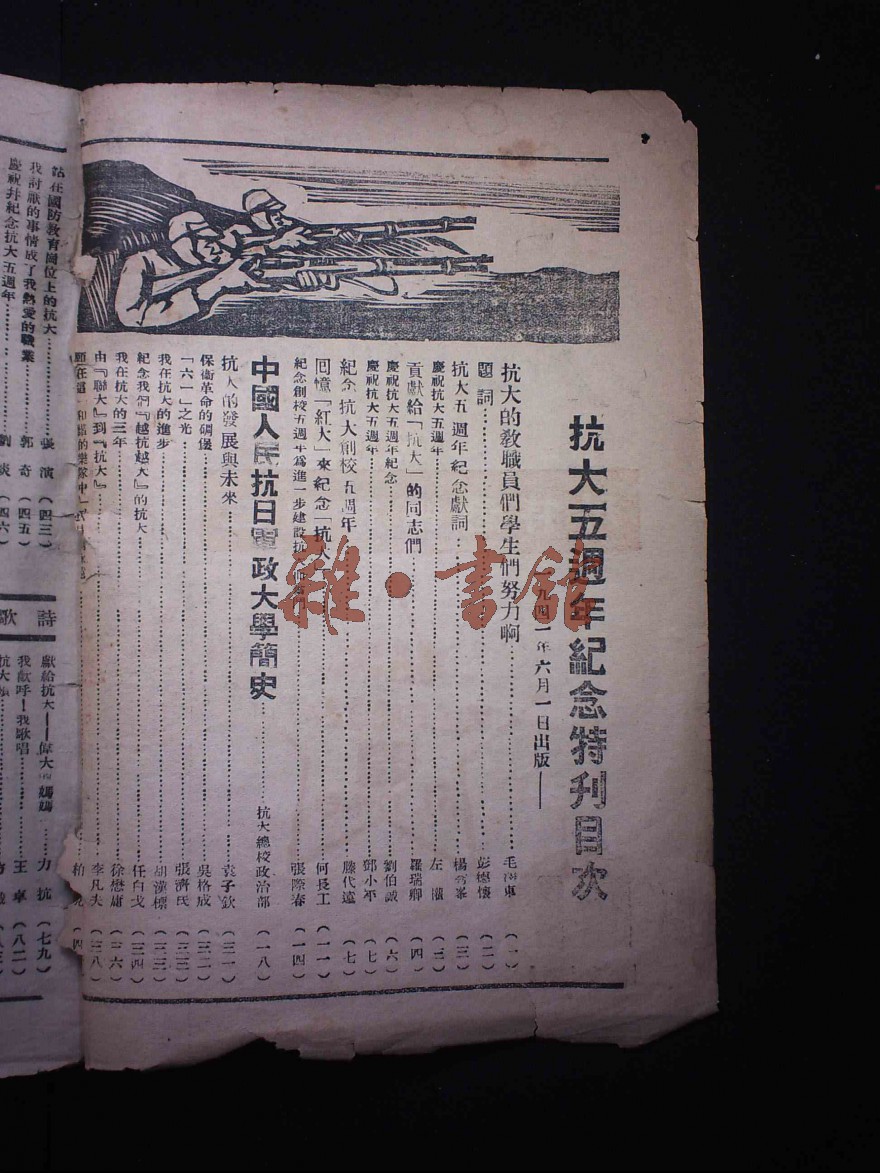 抗大五週年紀念特刊目次
一九四一年六月一日出版——
抗大的教職員們學生們努力啊……毛澤東（一）
題詞……彭德懷（二）
抗大五週年紀念獻詞……楊（三）
慶祝抗大五週年……左權（三）
貢獻給「抗大」的同志們……羅瑞卿（四）
慶祝抗大五週年紀念……劉伯誠（六）
慶祝抗大五週年……鄧小平（七）
紀念抗大創校五週年……滕代遠（七）
回憶「紅大」來紀念「抗大」……何長工（一一）
紀念創校五週年為進一步建設抗大……張際春（一四）
中國人民抗日軍政大學簡史……抗大總校政治部（一八）
抗大的發展與未來……袁子欽（三一）
保衛革命的碉堡……吳格成（三二）
「六一」之光……張濟民（三三）
我在抗大的進步……胡漢標（三三）
紀念我們『越抗越大』的抗大……任白戈（三四）
我在抗大的三年……徐懋庸（三六）
由『聯大』到『抗大』……李凡夫（三八）
願在這一和諧的樂隊中……柏（四
站在國防教育崗位上的抗大……張演（四三）
我討厭的事情成了我熱愛的職業……郭奇（四五）
慶祝并紀念抗大五週年……劉談（四六）
詩歌
獻給抗大——偉大的媽媽……力抗（七九）
我歡呼！我歌唱……王卓（八二）
抗大頌……（八三）
雜·書館